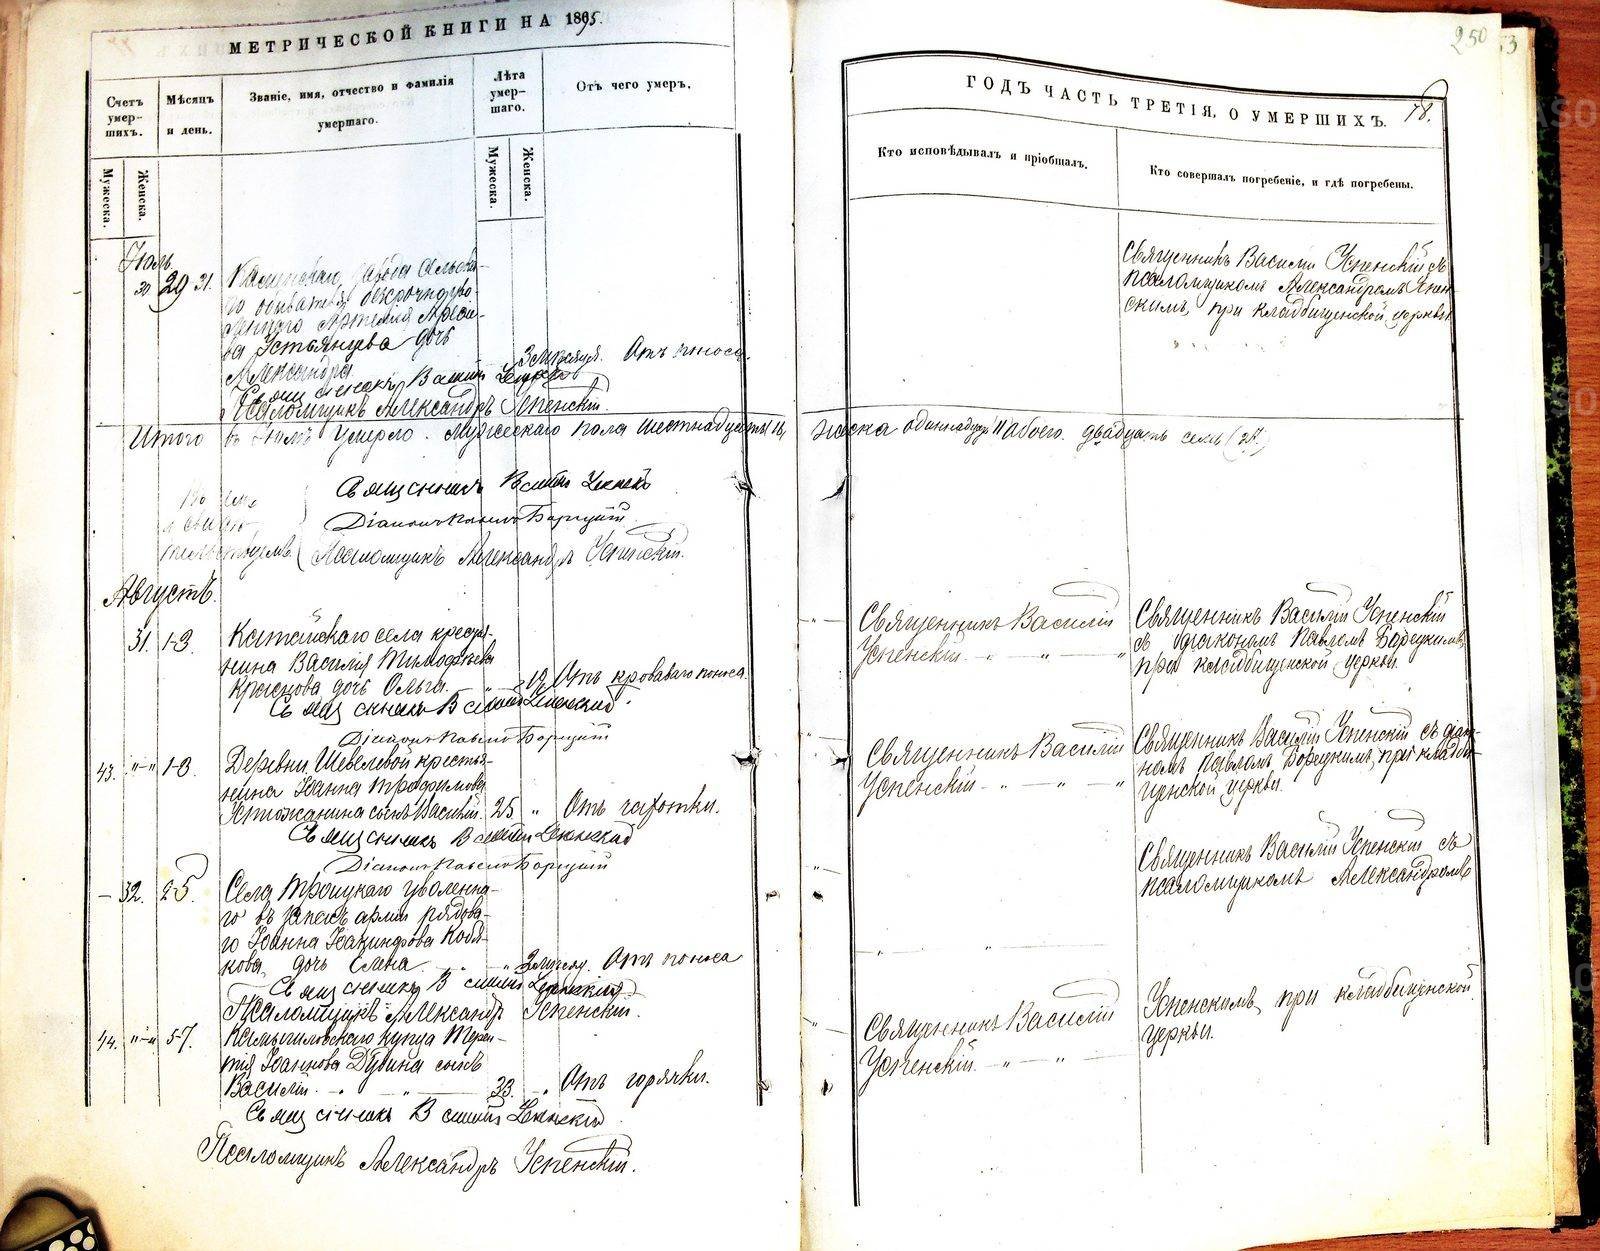 МЕТРИЧЕСКОЙ КНИГИ НА 1895.
Счетъ умер-шихъ.
Мѣсяцъ и день.
Званіе, имя, отчество и фамилія умершаго.
Лѣта умер-шаго.
Отъ чего умеръ.
Мужеска.
Женска.
Мужеска.
Женска.
Іюль
30 29 31.
Каменскаго завода сельска-
го обывателя
Артемія
ва Устьянцева дочь
Александра
Отъ поноса.
Священникъ Василій Успенскій
Псаломщикъ Александръ Успенскій.
Итого въ Іюлѣ умерло. Мужескаго пола шестнадцать (16)
Священникъ Василій Успенскій
Діаконъ Павелъ Борецкій
Псаломщикъ Александръ Успенскій.
Августъ.
31. 1-3. Катайскаго села кресть-
нина Василія Тимофеева
дочь Ольга. 12 Отъ кроваваго поноса
Священникъ Василій Успенскій.
Діаконъ Павелъ Борецкій
43. 1-3. Деревни Шевелевой кресть-
нина Іоанна Трофимова
сынъ Василій. 25. Отъ чахотки.
Священникъ Василій Успенскій
Діаконъ Павелъ Борецкій
32. 2-5. Села Троицкаго уволенна-
го въ запасъ арміи рядова-
го Іоанна Іакинфова Кобя-
кова дочь Елена Отъ поноса
Священникъ Василій Успенскій
Псаломщикъ Александръ Успенскій.
44. 5-7. Камышловскаго купца Терен-
тія Іоаннова Дубина сынъ
Василій. 33. Отъ горячки.
Священникъ Василій Успенскій
Псаломщикъ Александръ Успенскій.
250
53
ГОДЪ ЧАСТЬ ТРЕТІЯ, О УМЕРШИХЪ. 78.
Кто исповѣдывалъ и пріобщалъ.
Кто совершалъ погребеніе, и гдѣ погребены.
Священникъ Василій Успенскій съ
псаломщикомъ Александромъ Успен-
скимъ, при кладбищенской церкви
женска одиннадцать 11 обоего. двадцать семь (27.)
Священникъ Василій
Успенскій
Священникъ Василій Успенскій
съ діакономъ Павломъ Борецкимъ,
при кладбищенской церкви.
Священникъ Василій
Успенскій
Священникъ Василій Успенскій съ діако-
номъ Павломъ Борецкимъ, при кладби-
щенской церкви.
Священникъ Василій Успенскій съ
псаломщикомъ Александромъ
Успенскимъ, при кладбищенской
церкви.
Священникъ Василій
Успенскій